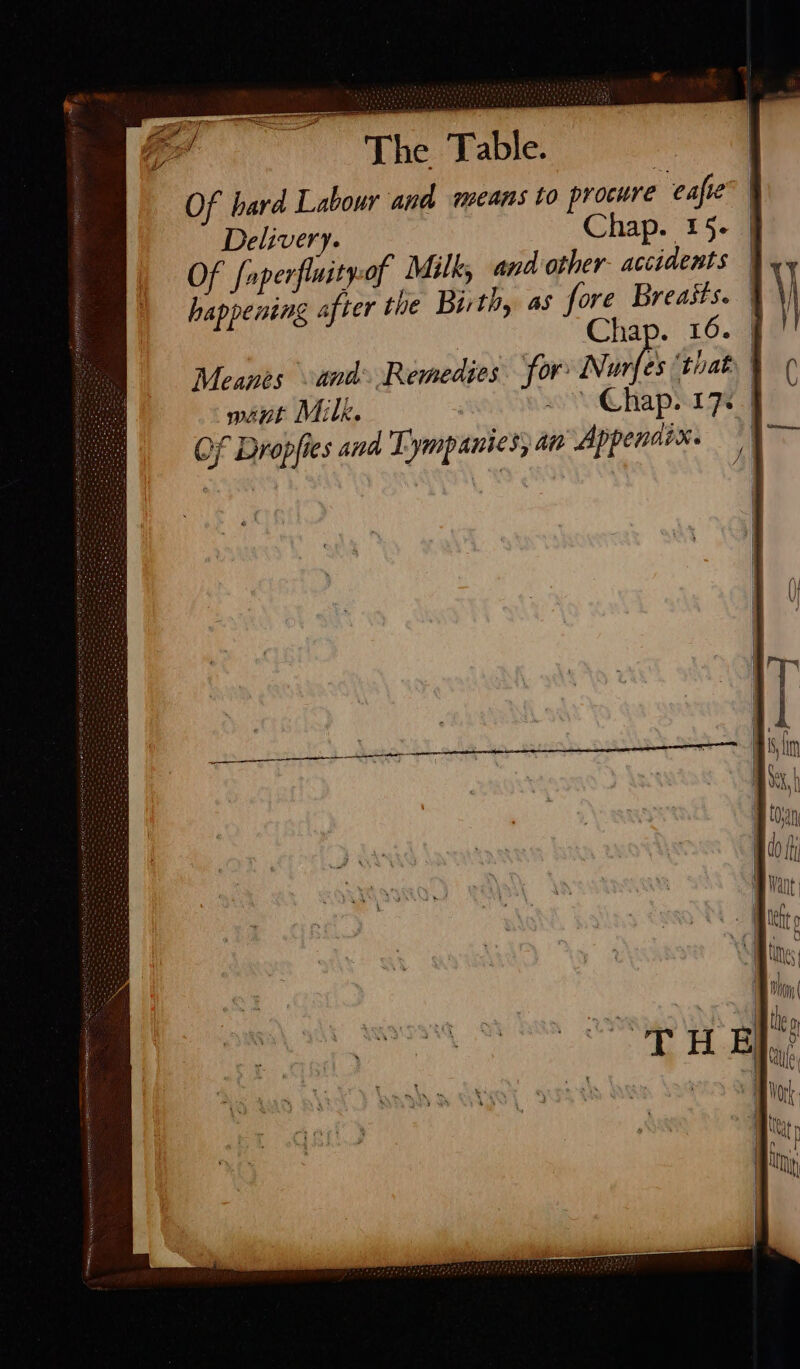 The Table.
Of hard Labour and means to procure eaſie
Delivery. Chap. 15.
Of ſuperfluity of Milk, and other accidents
happening after the Birth, as ſore Breaſts.
Chap. 16.
Meanes and Remedies for Nurſes that
want Milk. Chap. 17.
Of Dropſies and Tympanies, an Appendix.
THE